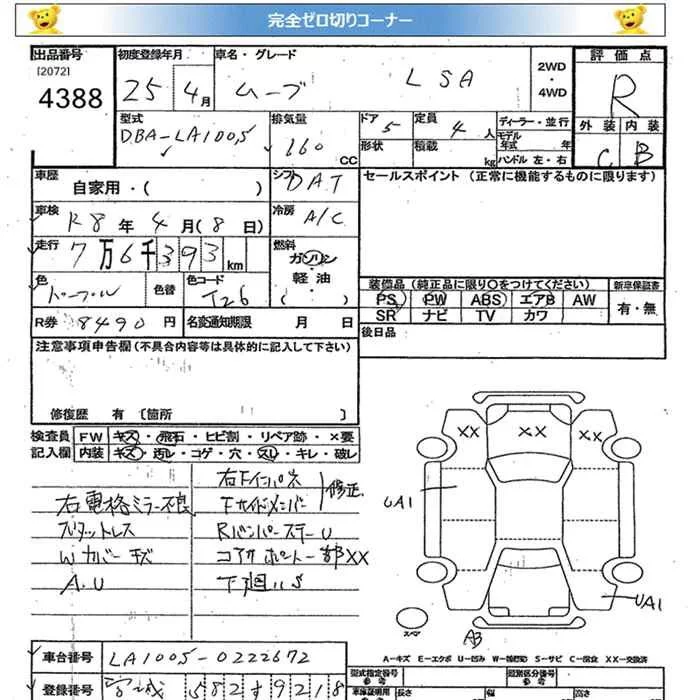 完全ゼロ切りコーナー
出品番号 初度登録年月 車名・グレード 2WD・4WD 評価点
[2072] 4388 25 4月 ムーブ L SA R
型式 排気量 ドア 定員 ディーラー・並行 外装 内装
DBA-LA100S 660 CC 5 4人 モデル年式 年 C B
形状 積載 kg ハンドル 左・右
車歴 シフト セールスポイント (正常に機能するものに限ります)
自家用・( ) DAT
車検 R8年4月(8日) 冷房 A/C
走行 7万6千393km 燃料 ガソリン・軽油・( )
色 色替 色コード 装備品(純正品に限り〇をつけてください) 新車保証書
パープル T26 PS PW ABS エアB AW 有・無
SR ナビ TV カワ
R券 8490円 名変通知期限 月 日 後日品
注意事項申告欄(不具合内容等は具体的に記入して下さい)
修復歴 有 〔箇所 〕
検査員 FW キズ・飛石・ヒビ割・リペア跡・×要
記入欄 内装 キズ・汚レ・コゲ・穴・スレ・キレ・破レ
右Fインパネ
Fサイドメンバー 修正
右電格ミラー不良
スタットレス RバンパーステーU
Wカバーキズ コアサポート一部XX
A.U 下廻りS
XX XX XX
UA1
UA1
スペア A3
A-キズ E-エクボ U-凹み W-補修跡 S-サビ C-腐食 XX-交換済
車台番号 LA100S-0222672 型式指定番号 類別区分番号
登録番号 宮城 582 す 9218 長さ 幅 高さ